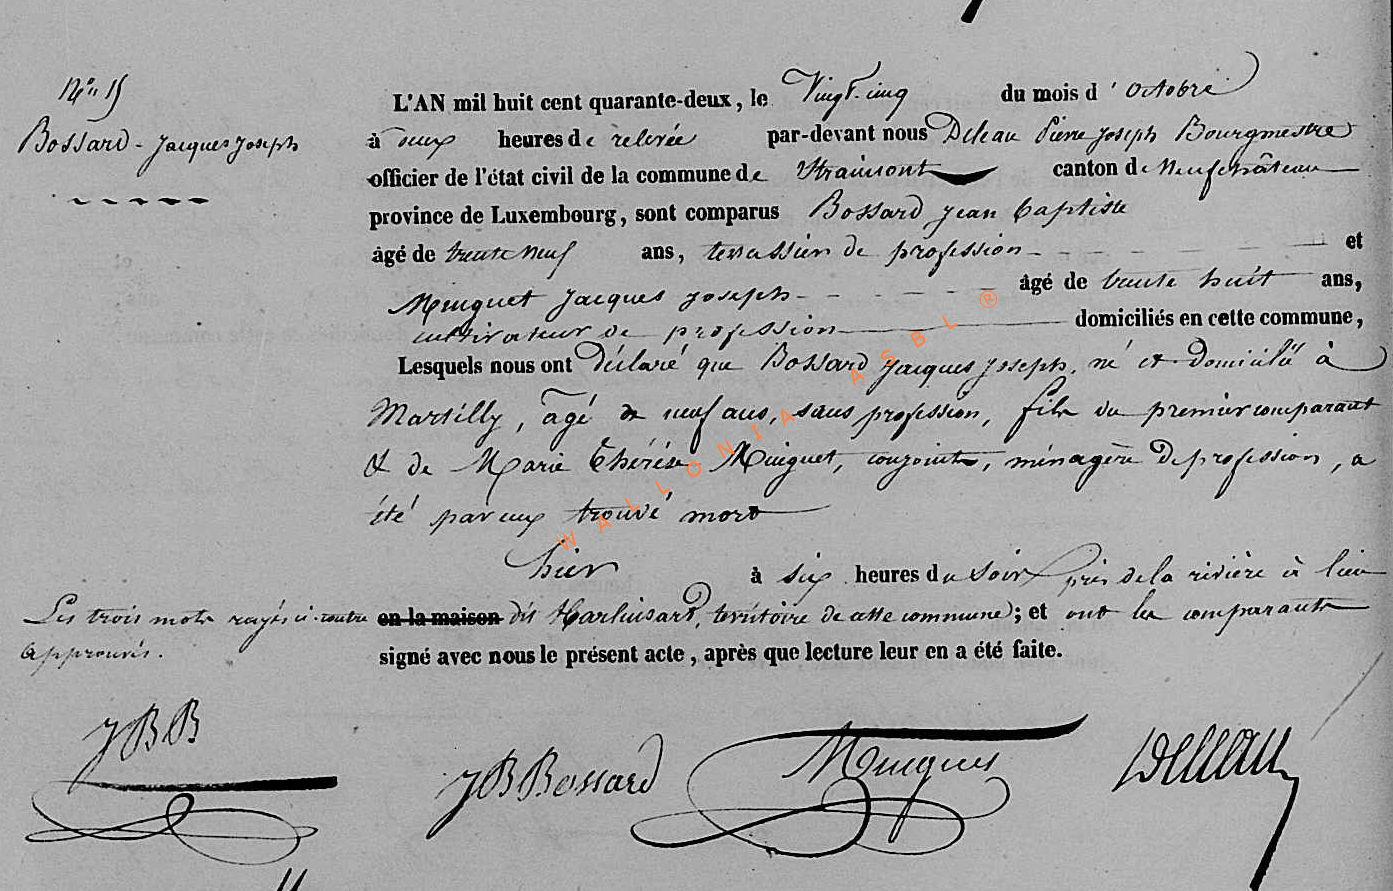 N° 15
Bossard - Jacques Joseph
L'AN mil huit cent quarante-deux, le Vingt-cinq du mois d'Octobre
à deux heures de relevée par-devant nous Deleau Pierre Joseph Bourgmestre
officier de l'état civil de la commune de Straimont canton de Neufchâteau
province de Luxembourg, sont comparus Bossard Jean Baptiste
âgé de trente neuf ans, terrassier de profession et
Muiguet Jacques Joseph âgé de trente huit ans,
cultivateur de profession domiciliés en cette commune,
Lesquels nous ont Déclaré que Bossard Jacques Joseph, né et Domicilié à
Martilly, âgé de neuf ans, sans profession, fils du premier comparant
& de Marie Thérèse Muiguet, conjoints, ménagère De profession, a
été par eux trouvé mort
hier à six heures du Soir près de la rivière à lieu
en la maison dit Harlinsart, territoire de cette commune; et ont les comparants
signé avec nous le présent acte, après que lecture leur en a été faite.
Les trois mots rayés ci-contre
approuvés.
JBB
JB Bossard
Muiguet
Deleau
WALLONIA ASBL ®